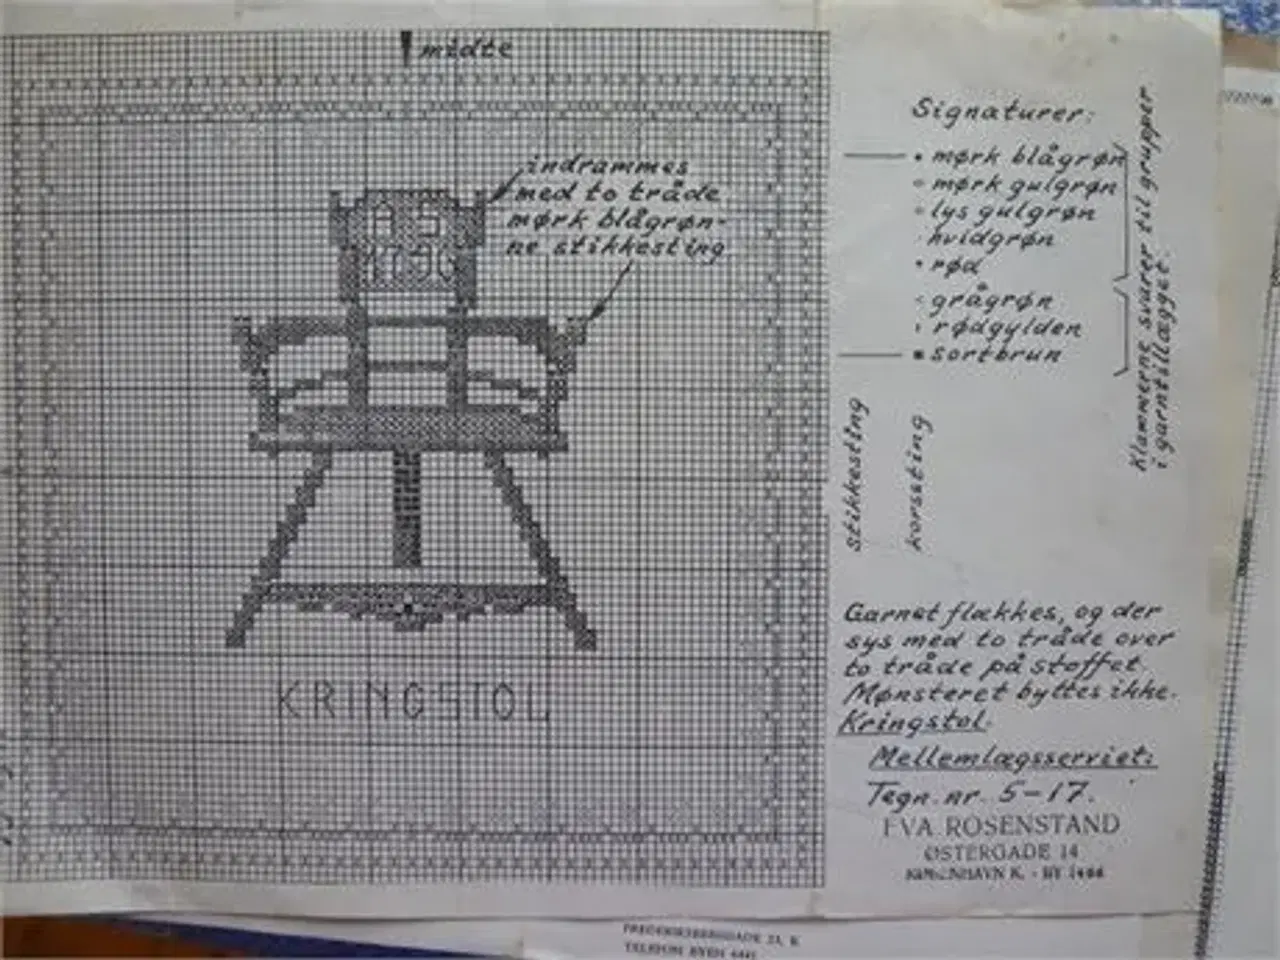 midte
indrammes
med to tråde
mørk blågrøn-
ne stikkesting
A S
KRINGSTOL
Signaturer:
mørk blågrøn
mørk gulgrøn
lys gulgrøn
hvidgrøn
rød
grågrøn
rødgylden
sortbrun
Klammerne svarer til grupper
i garntillægget.
stikkesting
korssting
Garnet flækkes, og der
sys med to tråde over
to tråde på stoffet.
Mønsteret byttes ikke.
Kringstol.
Mellemlægsserviet:
Tegn. nr. 5-17.
EVA ROSENSTAND
ØSTERGADE 14
KØBENHAVN K. - BY
FREDERIKSBERGGADE 23, K
TELEFON BYEN